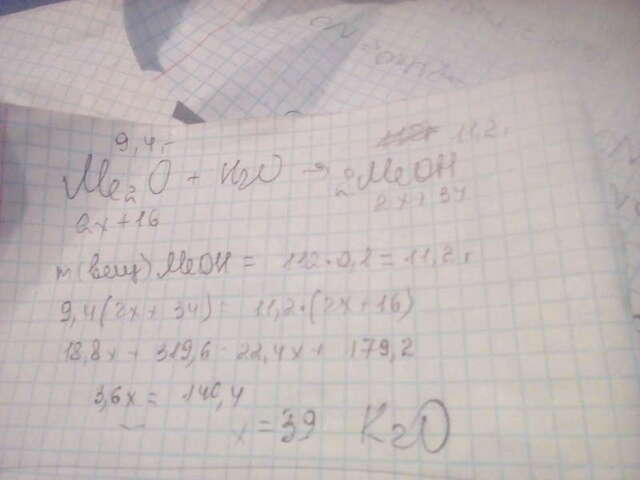 9,4г 11,2г
Me₂O + H₂O → 2MeOH
2x+16 2x+34
m(вещ) MeOH = 112·0,1 = 11,2г
9,4(2x+34) = 11,2·(2x+16)
18,8x + 319,6 = 22,4x + 179,2
3,6x = 140,4
x = 39 K₂O